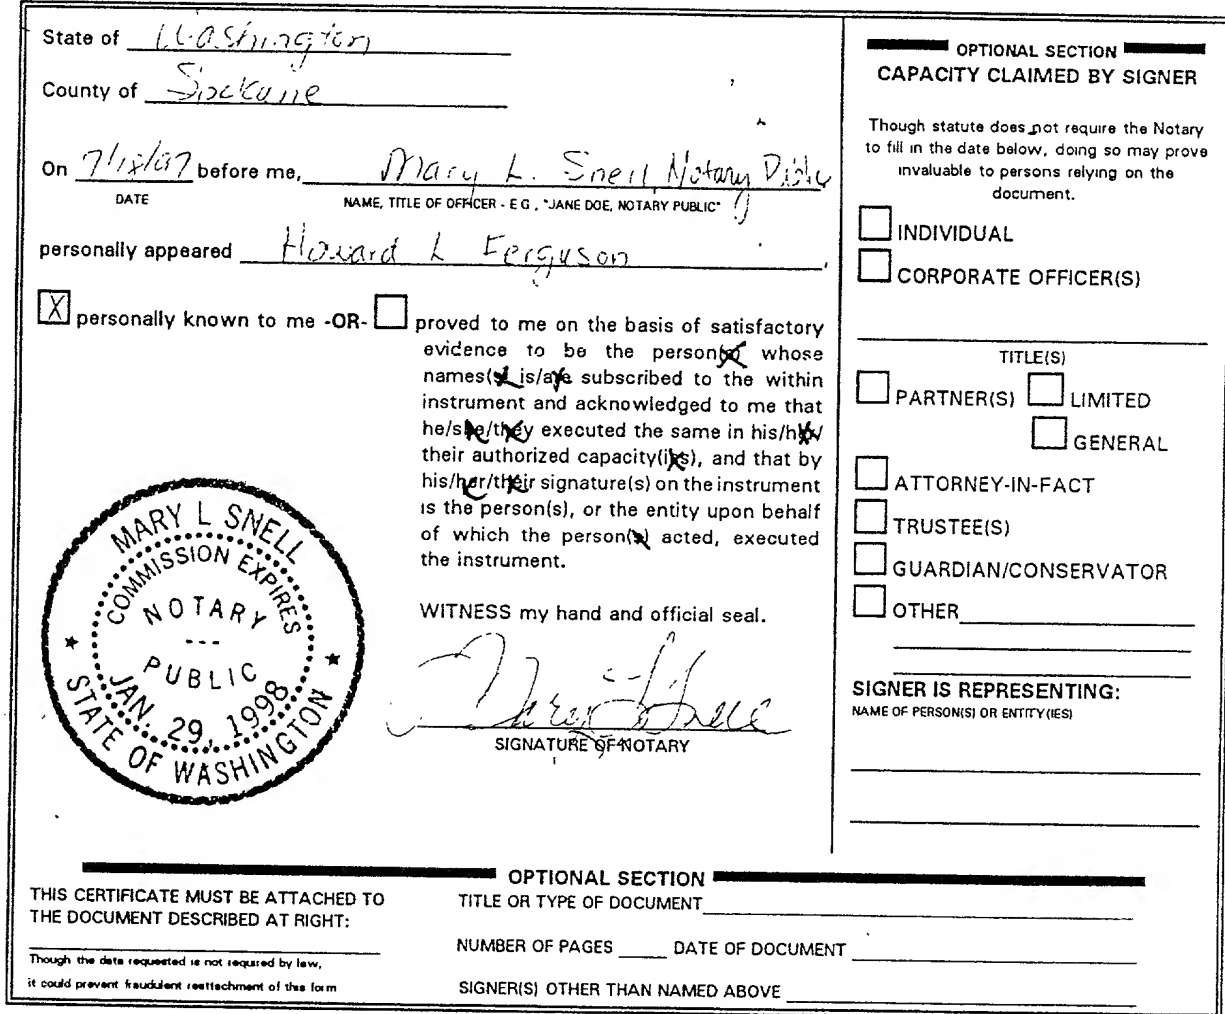 State of Washington
County of Spokane
On 7/18/97 before me, Mary L. Snell, Notary Public
DATE
NAME, TITLE OF OFFICER - E G , "JANE DOE, NOTARY PUBLIC"
personally appeared Howard L Ferguson ,
X personally known to me -OR- proved to me on the basis of satisfactory
evidence to be the person(s) whose
names(s) is/are subscribed to the within
instrument and acknowledged to me that
he/she/they executed the same in his/her/
their authorized capacity(ies), and that by
his/her/their signature(s) on the instrument
is the person(s), or the entity upon behalf
of which the person(s) acted, executed
the instrument.
WITNESS my hand and official seal.
Mary L Snell
SIGNATURE OF NOTARY
MARY L SNELL
COMMISSION EXPIRES
NOTARY
---
PUBLIC
JAN. 29, 1998
STATE OF WASHINGTON
OPTIONAL SECTION
CAPACITY CLAIMED BY SIGNER
Though statute does not require the Notary
to fill in the date below, doing so may prove
invaluable to persons relying on the
document.
INDIVIDUAL
CORPORATE OFFICER(S)
TITLE(S)
PARTNER(S) LIMITED
GENERAL
ATTORNEY-IN-FACT
TRUSTEE(S)
GUARDIAN/CONSERVATOR
OTHER
SIGNER IS REPRESENTING:
NAME OF PERSON(S) OR ENTITY(IES)
OPTIONAL SECTION
THIS CERTIFICATE MUST BE ATTACHED TO
THE DOCUMENT DESCRIBED AT RIGHT:
Though the data requested is not required by law,
it could prevent fraudulent reattachment of this form
TITLE OR TYPE OF DOCUMENT
NUMBER OF PAGES DATE OF DOCUMENT
SIGNER(S) OTHER THAN NAMED ABOVE